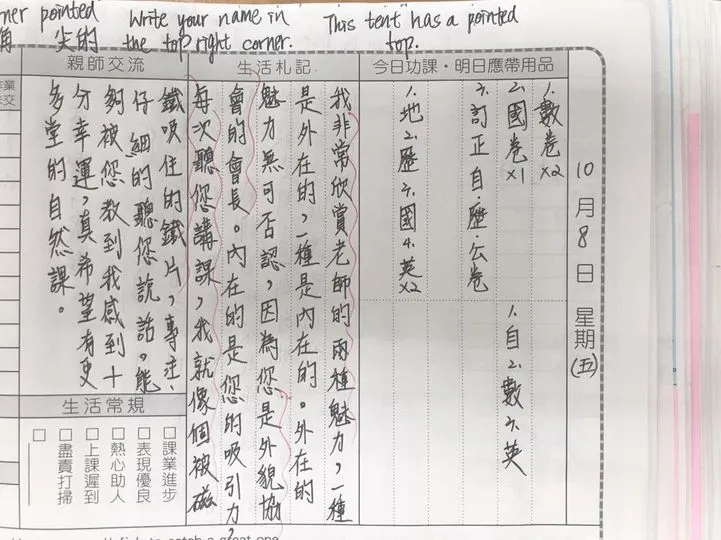 ner pointed
角 尖的
Write your name in
the top right corner.
This tent has a pointed
top.
10月8日 星期(五)
今日功課・明日應帶用品
1.數卷x2
2.國卷x1
3.訂正自.歷.公卷
1.地2.歷3.國4.英x2
1.自2.數3.英
生活札記
我非常欣賞老師的兩種魅力,一種
是外在的,一種是內在的。外在的
魅力無可否認,因為您是外貌協
會的會長。內在的是您的吸引力,
每次聽您講課,我就像個被磁
親師交流
鐵吸住的鐵片,專注、
仔細的聽您說話,能
夠被您教到我感到十
分幸運,真希望有更
多堂的自然課。
生活常規
□課業進步
□表現優良
□熱心助人
□上課遲到
□盡責打掃
□